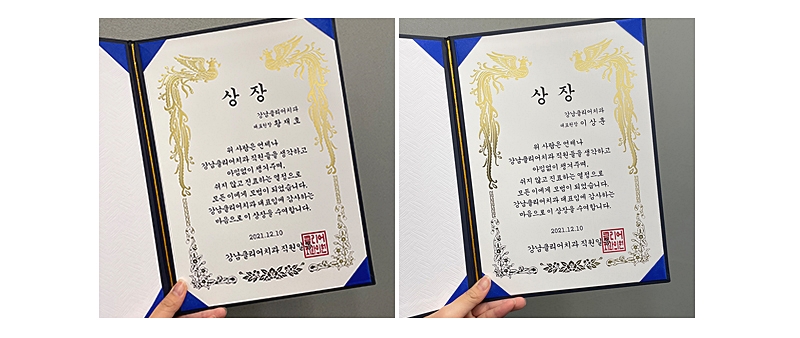 상 장
강남클리어치과
대표원장 황 재 호
위 사람은 언제나
강남클리어치과 직원들을 생각하고
아낌없이 챙겨주며,
쉬지 않고 진료하는 열정으로
모든 이에게 모범이 되었습니다.
강남클리어치과 대표님께 감사하는
마음으로 이 상장을 수여합니다.
2021.12.10
강남클리어치과 직원일
상 장
강남클리어치과
대표원장 이 상 훈
위 사람은 언제나
강남클리어치과 직원들을 생각하고
아낌없이 챙겨주며,
쉬지 않고 진료하는 열정으로
모든 이에게 모범이 되었습니다.
강남클리어치과 대표님께 감사하는
마음으로 이 상장을 수여합니다.
2021.12.10
강남클리어치과 직원일